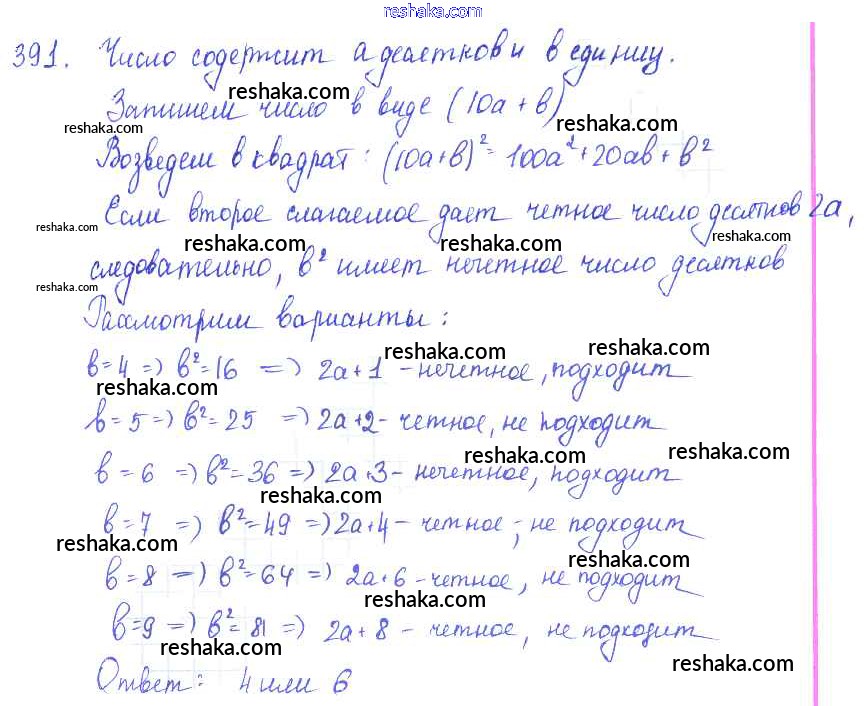 reshaka.com
391. Число содержит а десятков и в единиц.
reshaka.com
Запишем число в виде (10а + в)
reshaka.com reshaka.com
Возведем в квадрат: (10а+в)² = 100а² + 20ав + в²
reshaka.com reshaka.com
Если второе слагаемое дает четное число десятков 2а,
reshaka.com reshaka.com reshaka.com reshaka.com
следовательно, в² имеет нечетное число десятков
reshaka.com reshaka.com
Рассмотрим варианты:
reshaka.com reshaka.com
в=4 => в²=16 => 2а+1 - нечетное, подходит
reshaka.com
в=5 => в²=25 => 2а+2 - четное, не подходит
reshaka.com reshaka.com reshaka.com
в=6 => в²=36 => 2а+3 - нечетное, подходит
reshaka.com
в=7 => в²=49 => 2а+4 - четное, не подходит
reshaka.com reshaka.com
в=8 => в²=64 => 2а+6 - четное, не подходит
reshaka.com
в=9 => в²=81 => 2а+8 - четное, не подходит
reshaka.com reshaka.com
Ответ: 4 или 6